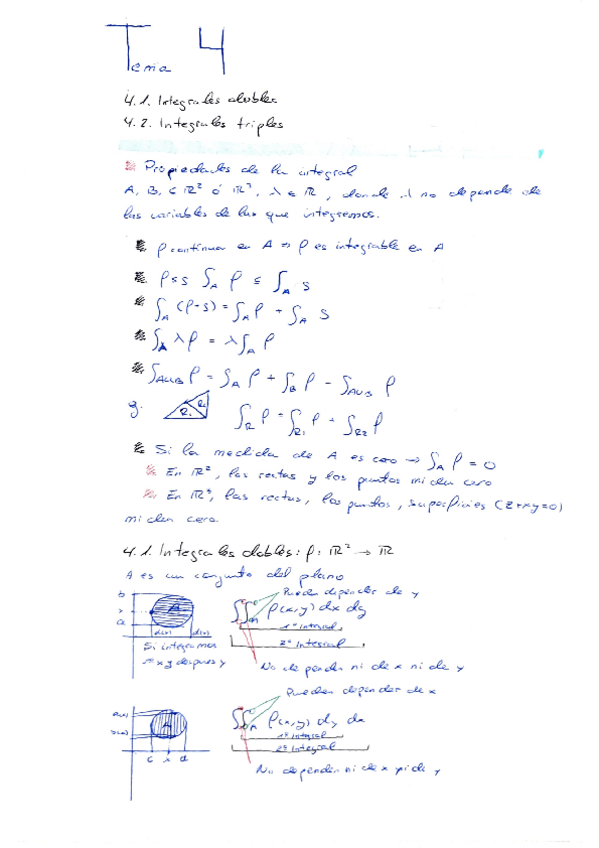 Tema 4
4.1. Integrales dobles
4.2. Integrales triples
Propiedades de la integral
A, B, ⊂ ℝ² ó ℝ³, λ ∈ ℝ, donde λ no depende de
las variables de las que integremos.
f continua en A ⇒ f es integrable en A
f ≤ s ∫_A f ≤ ∫_A s
∫_A (f-s) = ∫_A f + ∫_A s
∫_A λ f = λ ∫_A f
∫_AUB f = ∫_A f + ∫_B f - ∫_AUB f
R₁ R₂ ∫_R f = ∫_R1 f + ∫_R2 f
Si la medida de A es cero → ∫_A f = 0
En ℝ², las rectas y los puntos miden cero
En ℝ³, las rectas, los puntos, superficies (z+xy=0)
miden cero.
4.1. Integrales dobles: f: ℝ² → ℝ
A es un conjunto del plano
Pueden depender de y
b
a
A
∫∫ f(x,y) dx dy
1ª integral
2ª integral
Si integramos
x y después y
No depender ni de x ni de y
Pueden depender de x
A
∫∫ f(x,y) dy dx
1ª integral
2ª integral
c x d
No depender ni de x ni de y